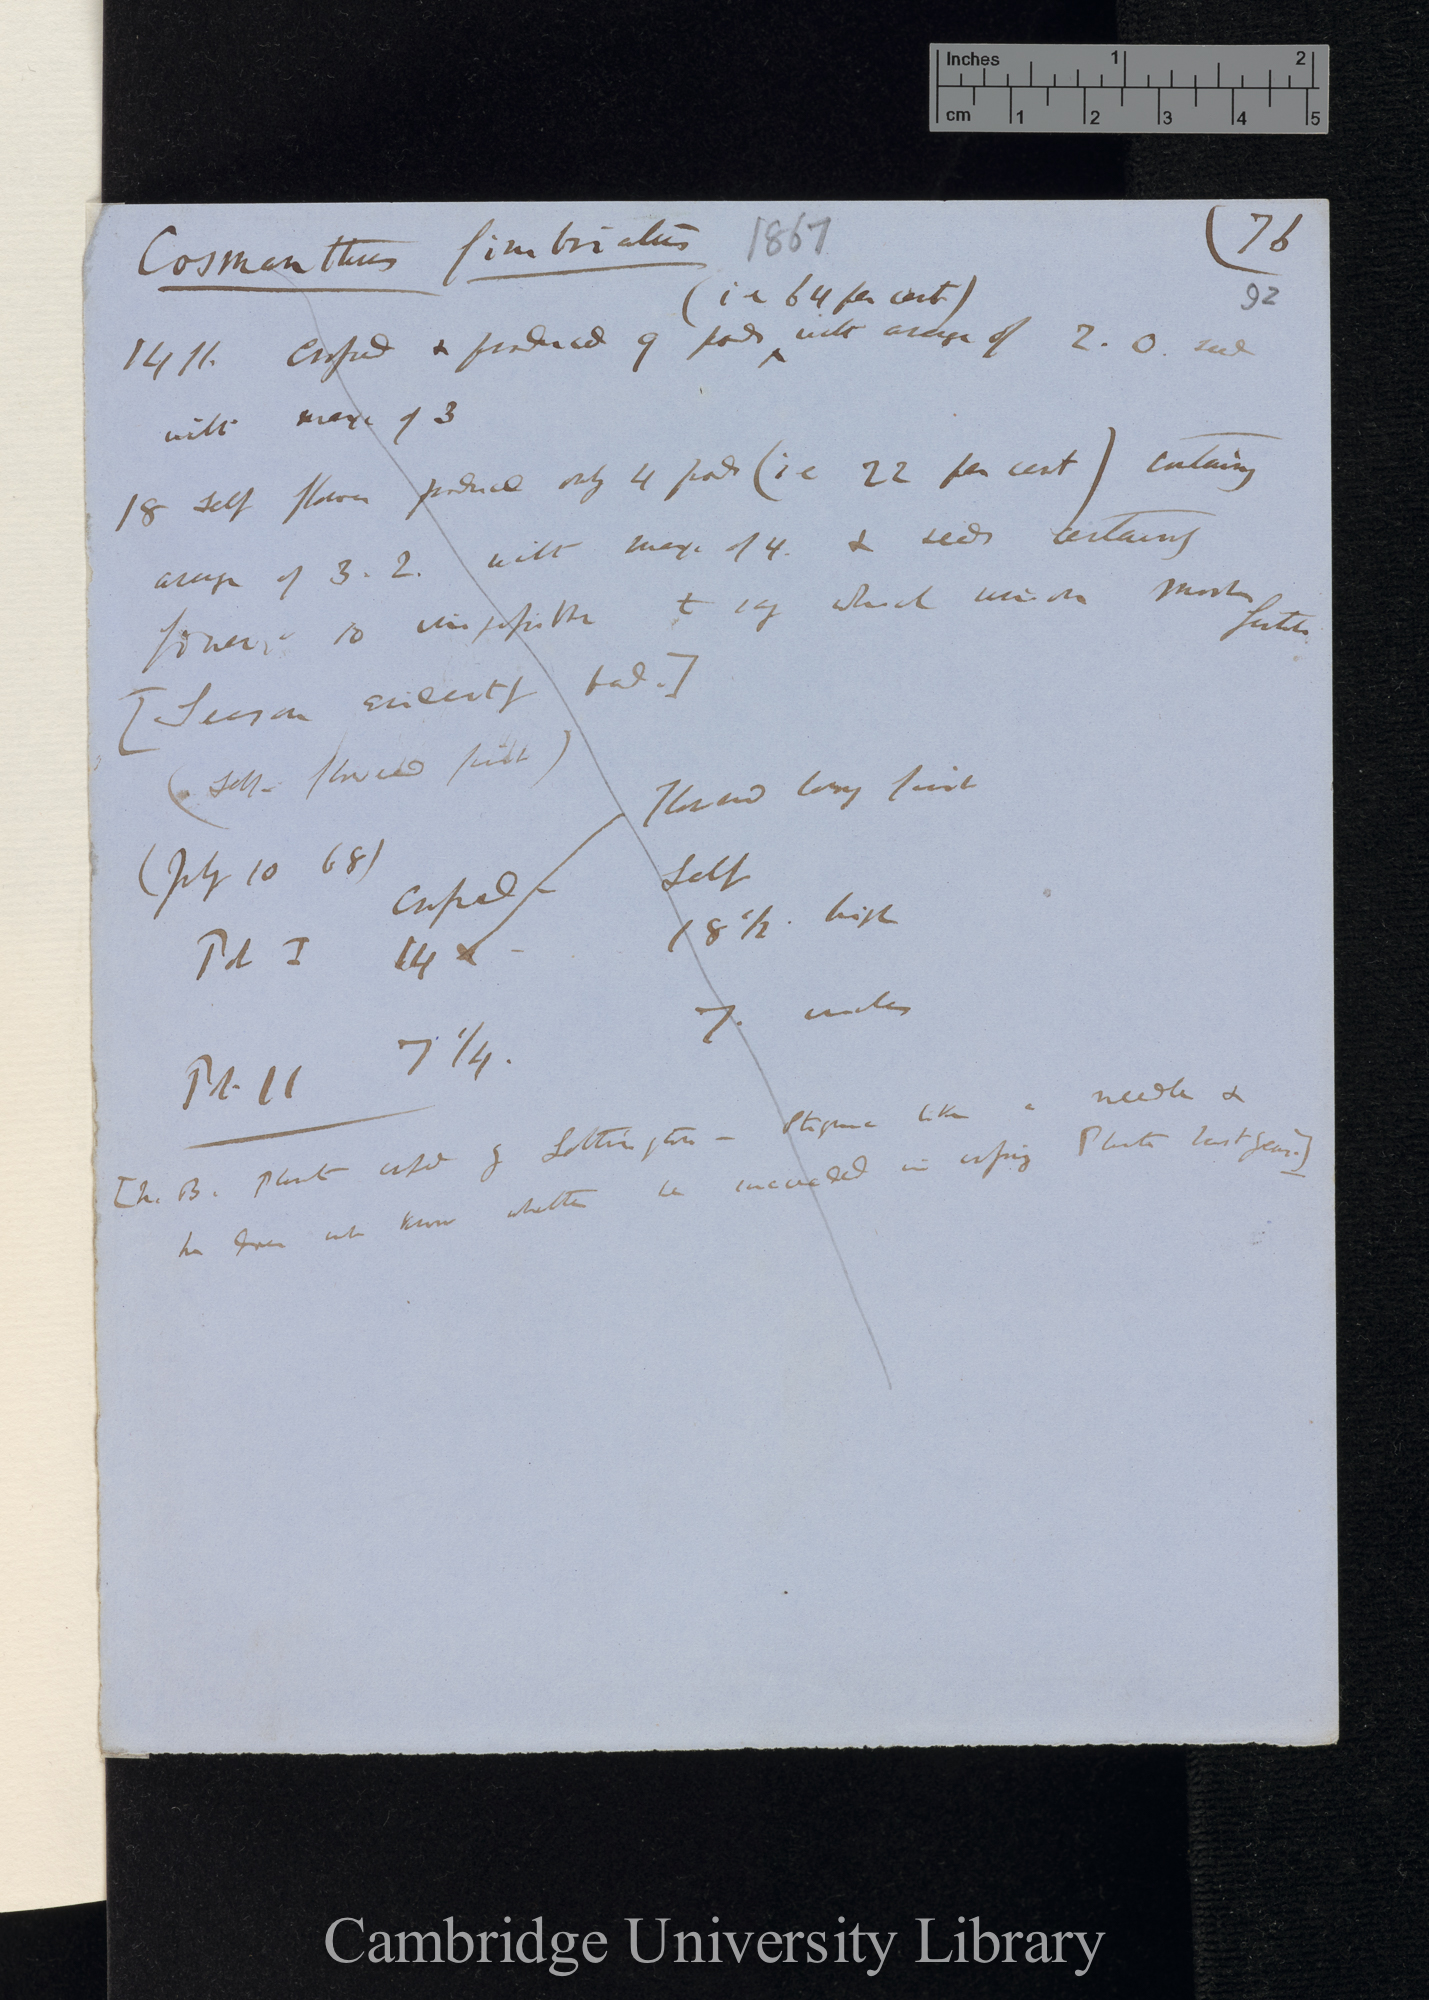 Inches 1 2
cm 1 2 3 4 5
Cosmanthus fimbriatus 1867 (76
92
(i e 64 per cent)
14 fl. crossed & produced 9 pods ^ with average of 2. 0. seed
with max. of 3
18 self flowers produced only 4 pods (i e 22 per cent) containing
average of 3. 2. with max. of 4. & seeds
to impossible to say which union more fertile
[Season evidently bad.]
(Self- flowered first)
Flowered long first
(July 10 68)
crossed - Self
Pot I 14 x - 18 1/2. high
Pot II 7 1/4. 7. inches
[N. B. Plants crossed by - Stigma like a needle &
he does not know whether he succeeded in crossing Plants last year.]
Cambridge University Library